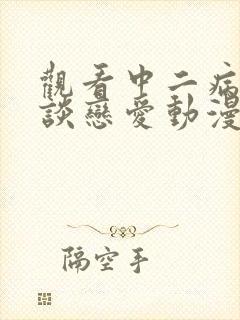 觀看中二病
談戀愛動漫
隔空手